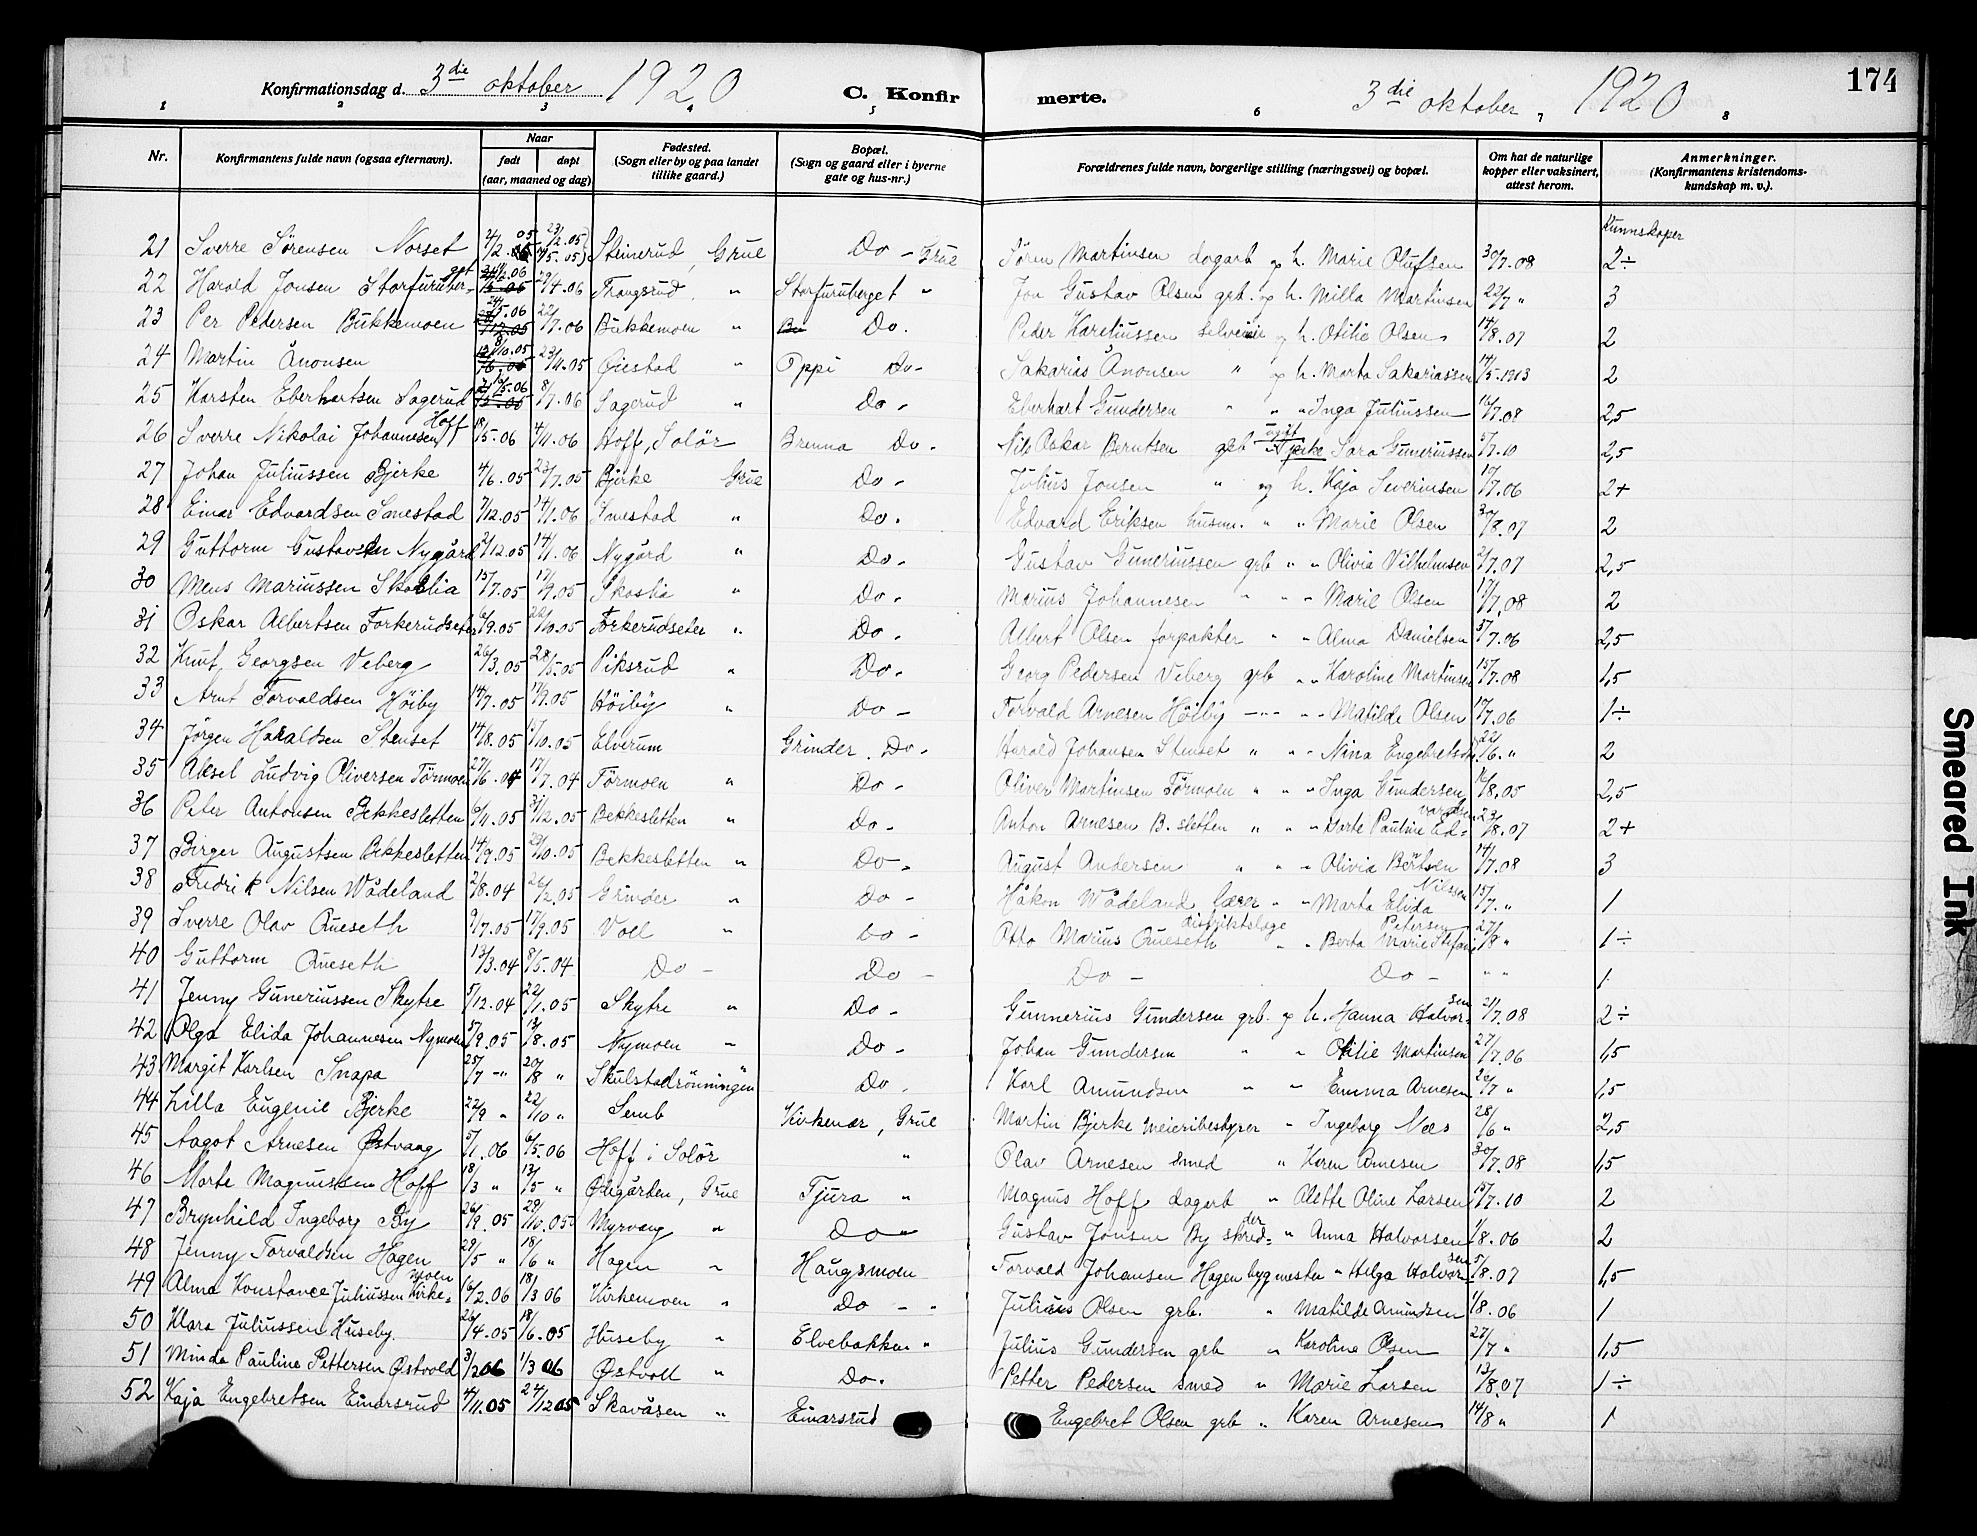 174
Konfirmationsdag d. 3die oktober 1920 C. Konfirmerte. 3die oktober 1920
1 2 3 4 5 6 7 8
Nr. Konfirmantens fulde navn (ogsaa efternavn). Naar født døpt (aar, maaned og dag) Fødested. (Sogn eller by og paa landet tillike gaard.) Bopæl. (Sogn og gaard eller i byerne gate og hus-nr.) Forældrenes fulde navn, borgerlige stilling (næringsvei) og bopæl. Om hat de naturlige kopper eller vaksinert, attest herom. Anmerkninger. (Konfirmantens kristendomskundskap m. v.).
Kunnskaper
21 Sverre Sørensen Norset Stinerud, Grue Do - Grue Søren Martinsen dagarb og h. Marie Olufsen 30/7.08 2÷
22 Harald Jonsen Storfuruberget 29/4.06 Storfuruberget " Jon Gustav Olsen grb. og h. Milla Martinsen 22/7 " 3
23 Per Pedersen Bukkemoen 24/5.06 22/7.06 Bukkemoen " Do. Peder selveier og h. Otilie Olsen 14/8.07 2
24 Martin Ånonsen 8/10.05 23/11.05 Øiestad " Oppi Do - Sakarias Ånonsen " og h. Marta Sakariassen 14/5.1913 2
25 Karsten Eberhartsen Sagerud 8/7.06 Sagerud " Do - Eberhart Gundersen " " " Inga Juliussen 16/7.08 2,5
26 Sverre Nikolai Johannesen Hoff 18/5.06 4/11.06 Hoff, Solør Brenna Do - Nils Oskar Berntsen grb ugift pike Sara Guneriussen 5/7.10 2,5
27 Johan Juliussen Bjerke 4/6.05 23/7.05 Bjerke Grue Do - Julius Jonsen " og h. Kaja Severinsen 10/7.06 2+
28 Einar Edvardsen Smestad 7/12.05 14/1.06 Smestad " Do. Edvard Eriksen husm. " " Marie Olsen 30/8.07 2
29 Guttorm Gustavsen Nygård 2/12.05 14/1.06 Nygård " Do - Gustav Guneriussen grb " " Olivia Vilhelmsen 2/7.07 2,5
30 Mens Mariussen Skaslia 15/7.05 17/9.05 Skaslia " Do - Marius Johannesen " " " Marie Olsen 17/7.08 2
31 Oskar Albertsen Torkerudseter 6/9.05 22/10.05 Torkerudseter " Do - Albert Olsen forpakter " " Alma Danielsen 5/7.06 2,5
32 Knut Georgsen Veberg 26/3.05 28/5.05 Piksrud " Do - Georg Pedersen Veberg grb " " Karoline Martinsen 15/7.08 1,5
33 Arnt Torvaldsen Höiby 14/7.05 17/9.05 Höiby " Do - Torvald Arnesen Höiby -"- " " Matilde Olsen 10/7.06 1÷
34 Jørgen Haraldsen Stenset 14/8.05 15/10.05 Elverum Grinder. Do - Harald Johansen Stenset " " " Nina Engebretsen 22/6. " 2
35 Aksel Ludvig Oliversen Törmoen 27/6.04 17/7.04 Törmoen " Do - Oliver Martinsen Törmoen " " " Inga Gundersen 16/8.05 2,5
36 Peter Antonsen Bekkesletten 6/11.05 31/12.05 Bekkesletten " Do - Anton Arnesen B.sletten " " " Marte Pauline Edvardsen 23/8.07 2+
37 Birger Augustsen Bekkesletten 14/9.05 29/10.05 Bekkesletten " Do - August Andersen " " " Olivia Børtsen 14/7.08 3
38 Fredrik Nilsen Wådeland 2/8.04 26/2.05 Grinder " Do - Håkon Wådeland lærer " " Marta Elida Nilssen 15/7. " 1
39 Sverre Olav Rueseth 9/7.05 17/9.05 Voll " Do - Otto Marius Rueseth distriktslæge " " Berta Marie Stefani Petersen 27/8 " 1÷
40 Guttorm Rueseth 13/3.04 8/5.04 Do - Do - Do - Do - " " 1
41 Jenny Guneriussen Skytre 5/12.04 22/1.05 Skytre " Do - Gunnerius Gundersen grb. og h. Hanna Halvorsen 21/7.08 2÷
42 Olga Elida Johannesen Nymoen 5/9.05 13/8.05 Nymoen - Do - Johan Gundersen " " Otilie Martinsen 27/7.06 1,5
43 Margit Karlsen Snapa 25/7 -" 20/8 " Skulstadrönningen " Do - Karl Amundsen " " Emma Arnesen 26/7 " 1,5
44 Lilla Eugenie Bjerke 22/9 " 22/10 " Semb Kirkenær, Grue Martin Bjerke meieribestyrer " Ingeborg Næs 28/6 " 2,5
45 Aagot Arnesen Østvaag 5/1.06 6/5.06 Hoff i Solör " Olav Arnesen smed " Karen Arnesen 30/7.08 1,5
46 Marte Magnussen Hoff 18/3 " 13/5 " Øiegården, Grue Tjura " Magnus Hoff dagarb " Olette Oline Larsen 15/7.10 2
47 Brynhild Ingeborg By 26/9.05 29/10.05 Myrvang " Do " Gustav Jonsen By skredder " Anna Halvorsen 1/8.06 2
48 Jenny Torvaldsen Hagen 29/5 " 18/6 " Hagen " Haugsmoen Torvald Johansen Hagen bygmester " Helga Halvorsen 5/8.07 1,5
49 Alma Konstance Juliussen Kirkemoen 16/2.06 18/3 06 Kirkemoen " Do - " Julius Olsen grb. " Matilde Amundsen 1/8.06 1
50 Klara Juliussen Huseby 26/4.05 18/6.05 Huseby " Elvebakken " Julius Gundersen grb " Karoline Olsen 27/7 " 1,5
51 Minda Pauline Pettersen Østvold 3/2 06 1/3 06 Østvoll " Do. Petter Pedersen smed " Marie Larsen 13/8.07 1÷
52 Kaja Engebretsen Einarsrud 4/11.05 24/12 05 Skavåsen " Einarsrud Engebret Olsen grb " Karen Arnesen 14/8 " 1
Smeared Ink